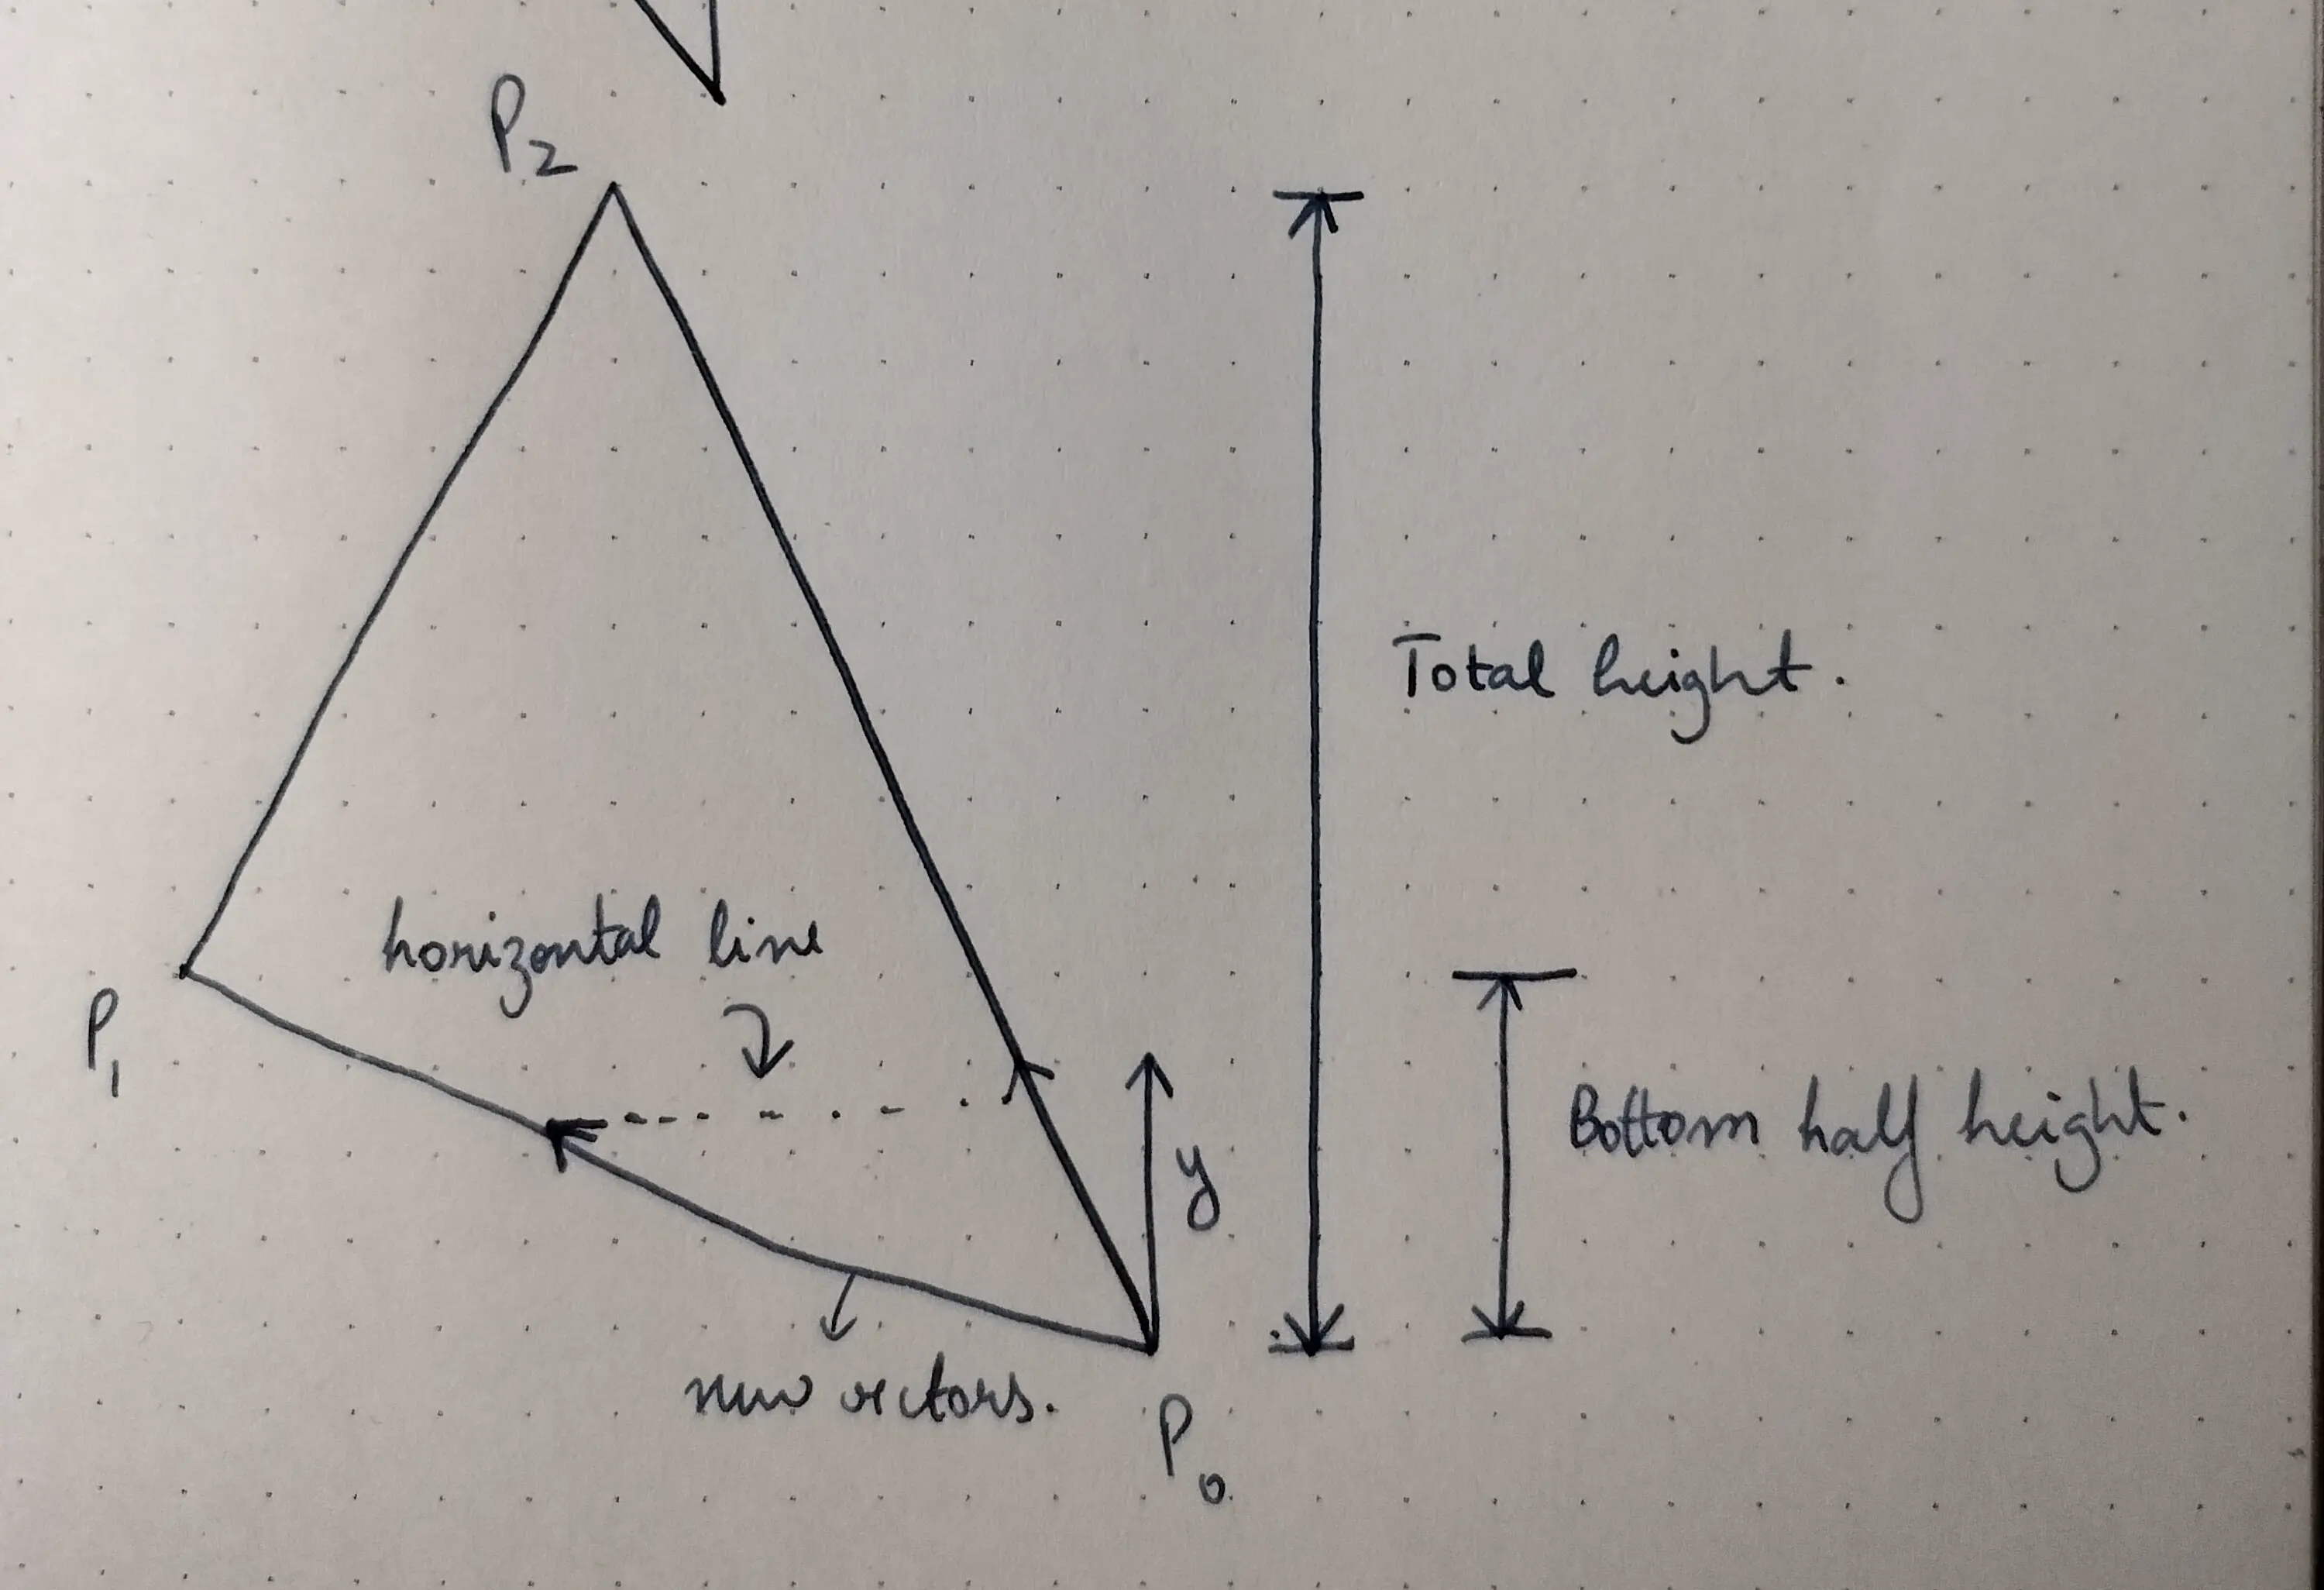 P2
Total height.
horizontal line
P1
Bottom half height.
y
new vectors.
P0